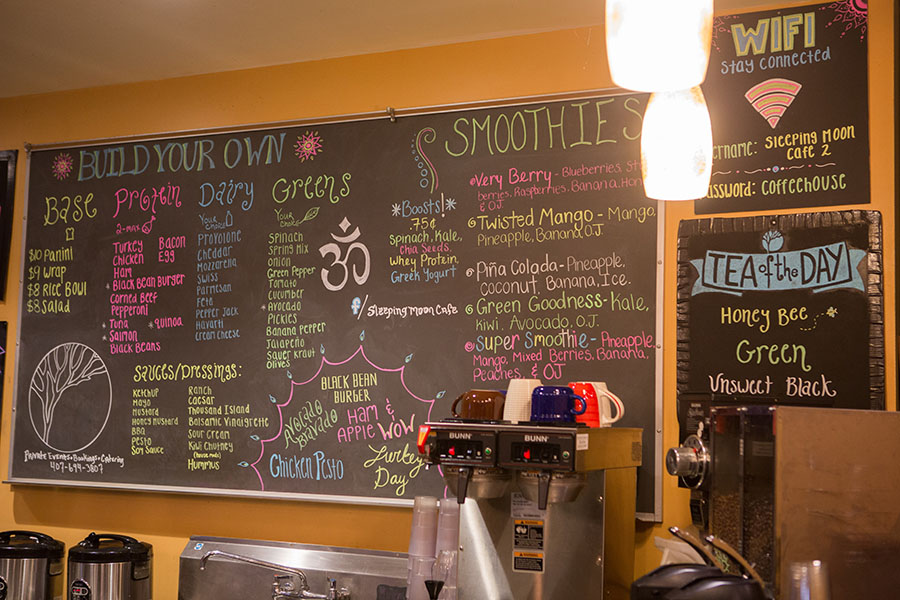 BUILD YOUR OWN
Base
$10 Panini
$9 Wrap
$8 Rice Bowl
$8 Salad
Protein
2-max
Turkey Bacon
Chicken Egg
Ham
Black Bean Burger
Corned Beef
Pepperoni
*Tuna *quinoa
Salmon
Black Beans
Dairy
Your Choice
Provolone
Cheddar
Mozzarella
Swiss
Parmesan
Feta
Pepper Jack
Havarti
Cream Cheese
Greens
Your Choice
Spinach
Spring Mix
Onion
Green Pepper
Tomato
Cucumber
*Avocado
Pickles
Banana Pepper
Jalapeño
Sauer Kraut
Olives
ॐ
f/SleepingMoonCafe
Sauces/Dressings:
Ketchup
Mayo
Mustard
Honey Mustard
BBQ
Pesto
Soy Sauce
Ranch
Caesar
Thousand Island
Balsamic Vinaigrette
Sour Cream
Kiwi Chutney
(house made)
Hummus
Private Events • Bookings • Catering
407-694-3807
BLACK BEAN
BURGER
Avocado
Bravado
Ham &
Apple WOW
Chicken Pesto
Turkey
Day
*Boosts!*
.75¢
Spinach, Kale,
Chia Seeds,
Whey Protein,
Greek Yogurt
SMOOTHIES
Very Berry - Blueberries,
berries, Raspberries, Banana,
& O.J.
Twisted Mango - Mango,
Pineapple, Banana O.J.
Piña Colada - Pineapple,
Coconut, Banana, Ice.
Green Goodness - Kale,
Kiwi, Avocado, O.J.
Super Smoothie - Pineapple,
Mango, Mixed Berries, Banana,
Peaches, & OJ
WIFI
Stay connected
Sleeping Moon
Cafe 2
coffeehouse
TEA of the DAY
Honey Bee
Green
Unsweet Black
BUNN
BUNN